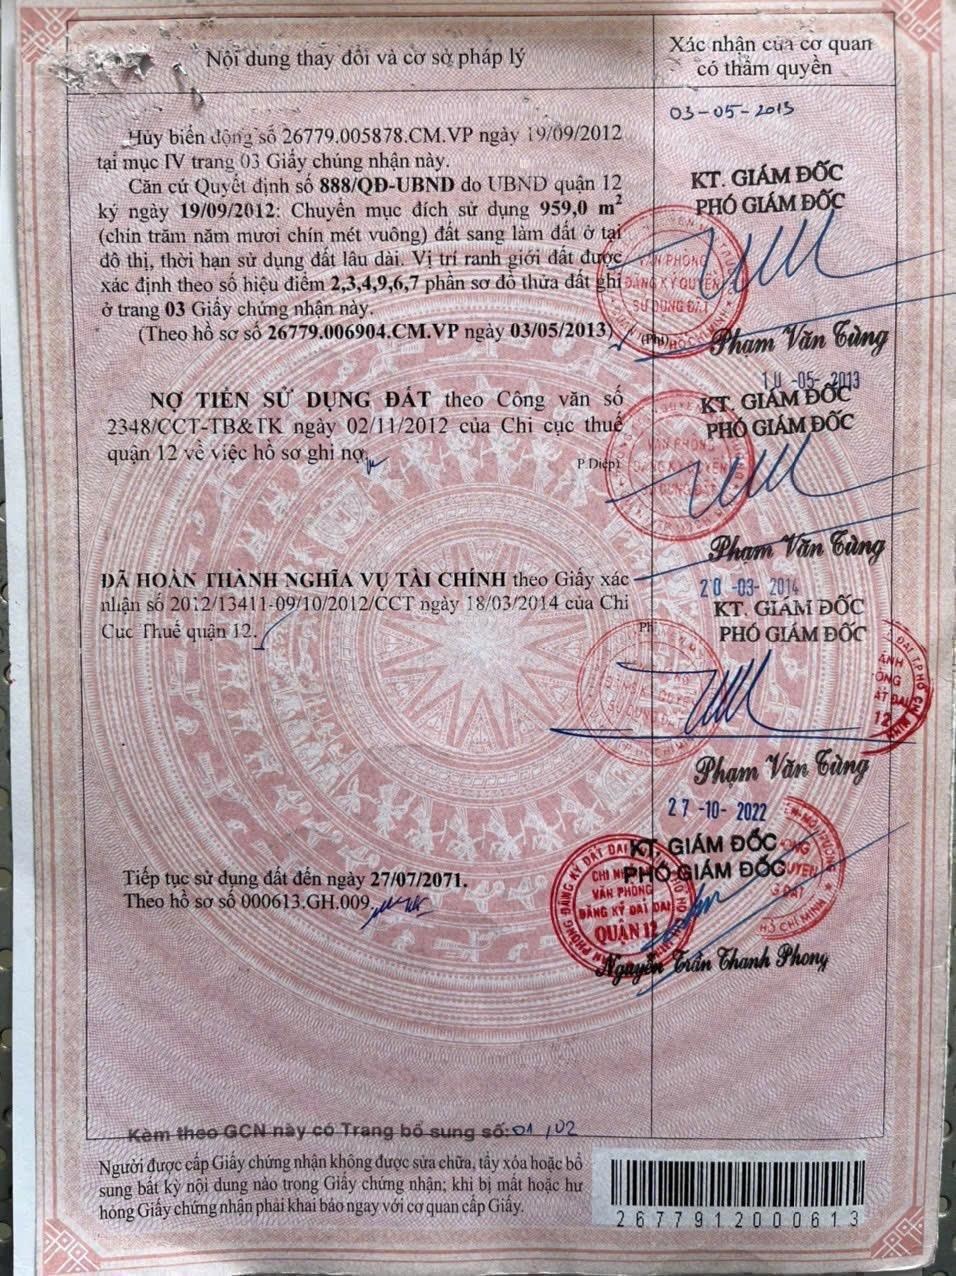 Nội dung thay đổi và cơ sở pháp lý
Xác nhận của cơ quan
có thẩm quyền
03-05-2013
Hủy biến động số 26779.005878.CM.VP ngày 19/09/2012
tại mục IV trang 03 Giấy chứng nhận này.
Căn cứ Quyết định số 888/QĐ-UBND do UBND quận 12
ký ngày 19/09/2012: Chuyển mục đích sử dụng 959,0 m²
(chín trăm năm mươi chín mét vuông) đất sang làm đất ở tại
đô thị, thời hạn sử dụng đất lâu dài. Vị trí ranh giới đất được
xác định theo số hiệu điểm 2,3,4,9,6,7 phần sơ đồ thửa đất ghi
ở trang 03 Giấy chứng nhận này.
(Theo hồ sơ số 26779.006904.CM.VP ngày 03/05/2013)
(Phi)
KT. GIÁM ĐỐC
PHÓ GIÁM ĐỐC
VĂN PHÒNG
ĐĂNG KÝ QUYỀN
SỬ DỤNG ĐẤT
Phạm Văn Tùng
10-05-2013
NỢ TIỀN SỬ DỤNG ĐẤT theo Công văn số
2348/CCT-TB&TK ngày 02/11/2012 của Chi cục thuế
quận 12 về việc hồ sơ ghi nợ.
P.Diệp)
KT. GIÁM ĐỐC
PHÓ GIÁM ĐỐC
VĂN PHÒNG
ĐĂNG KÝ QUYỀN
SỬ DỤNG ĐẤT
Phạm Văn Tùng
20-03-2014
ĐÃ HOÀN THÀNH NGHĨA VỤ TÀI CHÍNH theo Giấy xác
nhận số 2012/13411-09/10/2012/CCT ngày 18/03/2014 của Chi
Cục Thuế quận 12.
KT. GIÁM ĐỐC
PHÓ GIÁM ĐỐC
SỬ DỤNG ĐẤT
Phạm Văn Tùng
27-10-2022
Tiếp tục sử dụng đất đến ngày 27/07/2071.
Theo hồ sơ số 000613.GH.009.
KT. GIÁM ĐỐC
PHÓ GIÁM ĐỐC
VĂN PHÒNG
ĐĂNG KÝ ĐẤT ĐAI
QUẬN 12
Nguyễn Trần Thanh Phong
Kèm theo GCN này có Trang bổ sung số: 01, 02
Người được cấp Giấy chứng nhận không được sửa chữa, tẩy xóa hoặc bổ
sung bất kỳ nội dung nào trong Giấy chứng nhận; khi bị mất hoặc hư
hỏng Giấy chứng nhận phải khai báo ngay với cơ quan cấp Giấy.
2677912000613